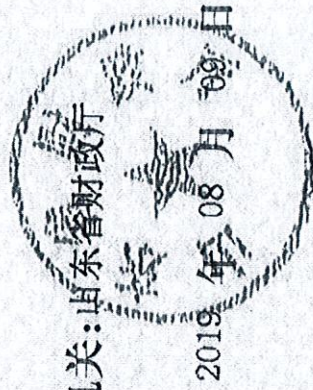 机关:山东省财政厅
2019 年 08 月 09 日